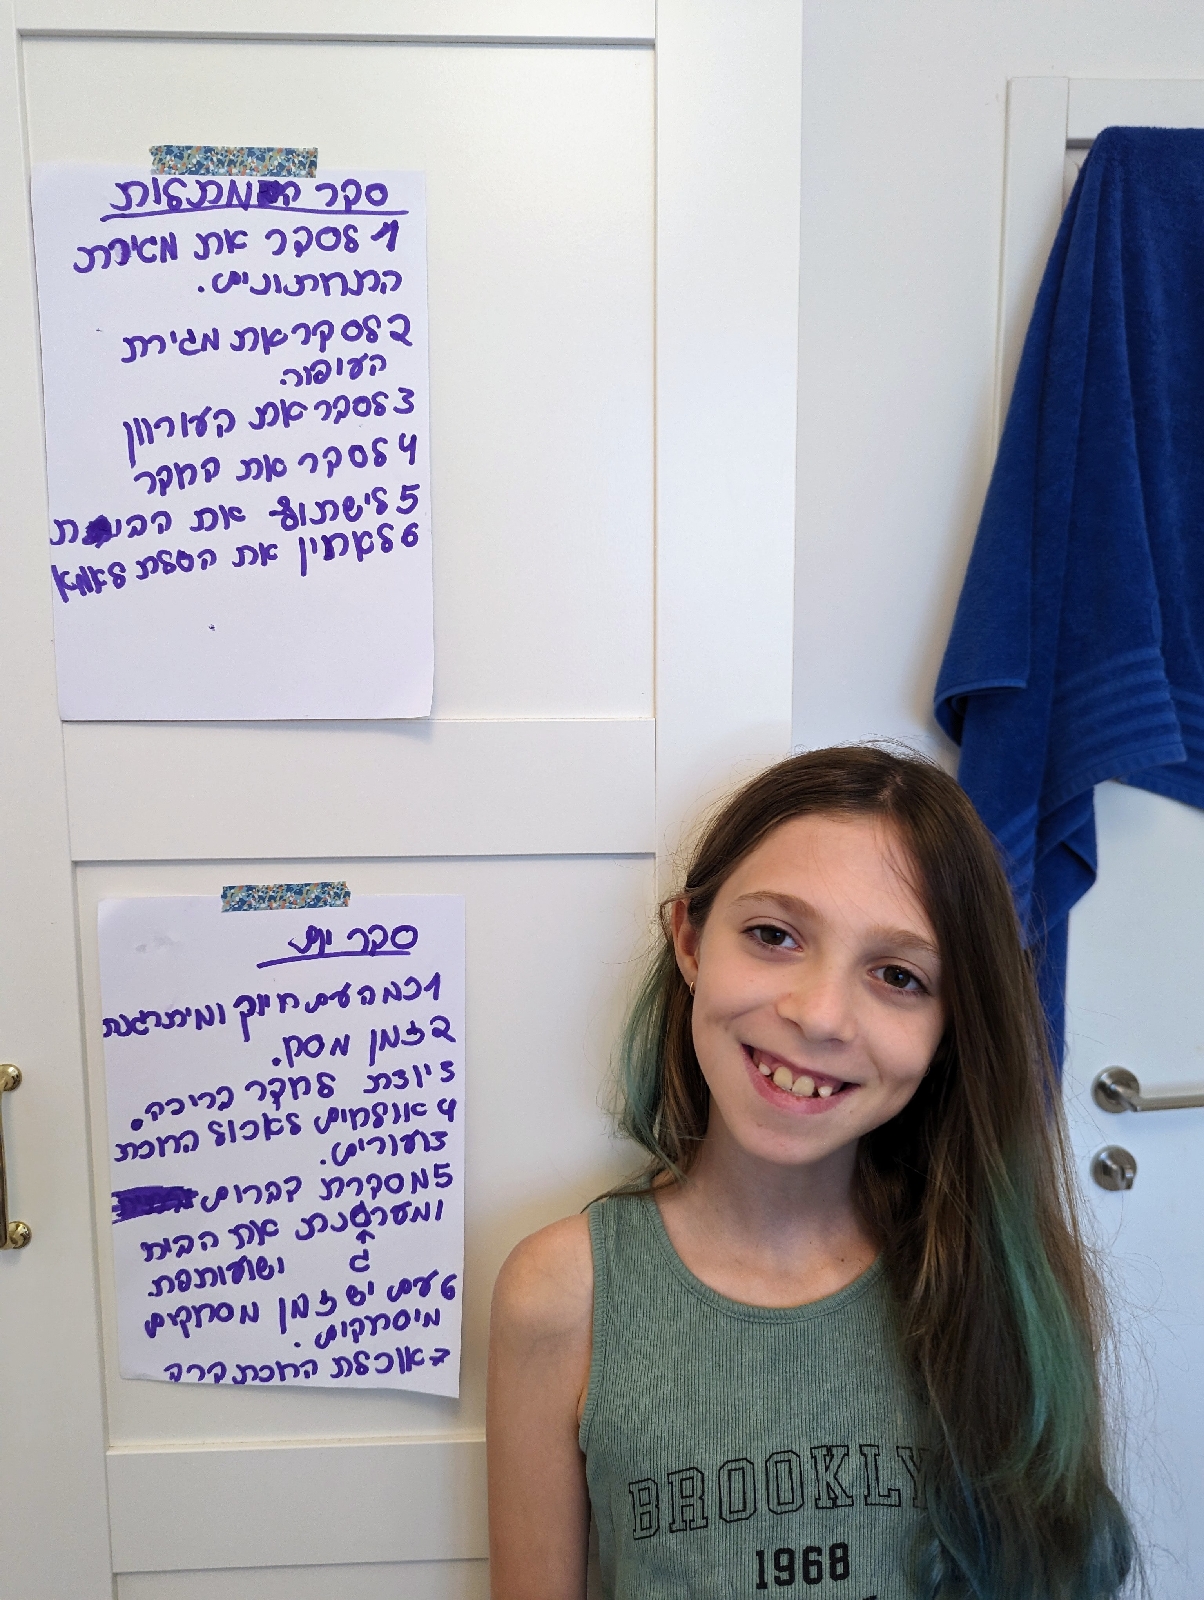 סדר המטלות
1 לסדר את מגירת
התחתונים.
2 לסדר את מגירת
העיפור.
3 לסדר את הארון
4 לסדר את החדר
5 לישתוף את הבית
6 להחזין את הסלת לאמא
סדר יום
1 כמה עם חיוך ומיתרגנת
2 זמן מסך.
3 יוצת לחדר בריכה.
4 אולחים לאכול ארוכת
צועורים.
5 מסדרת דברים
ומערגנת את הבית
ושועותפת
6 עם יש זמן מסחקים
מיסחקים.
7 אוכלת ארוכת ערב
BROOKLY
1968